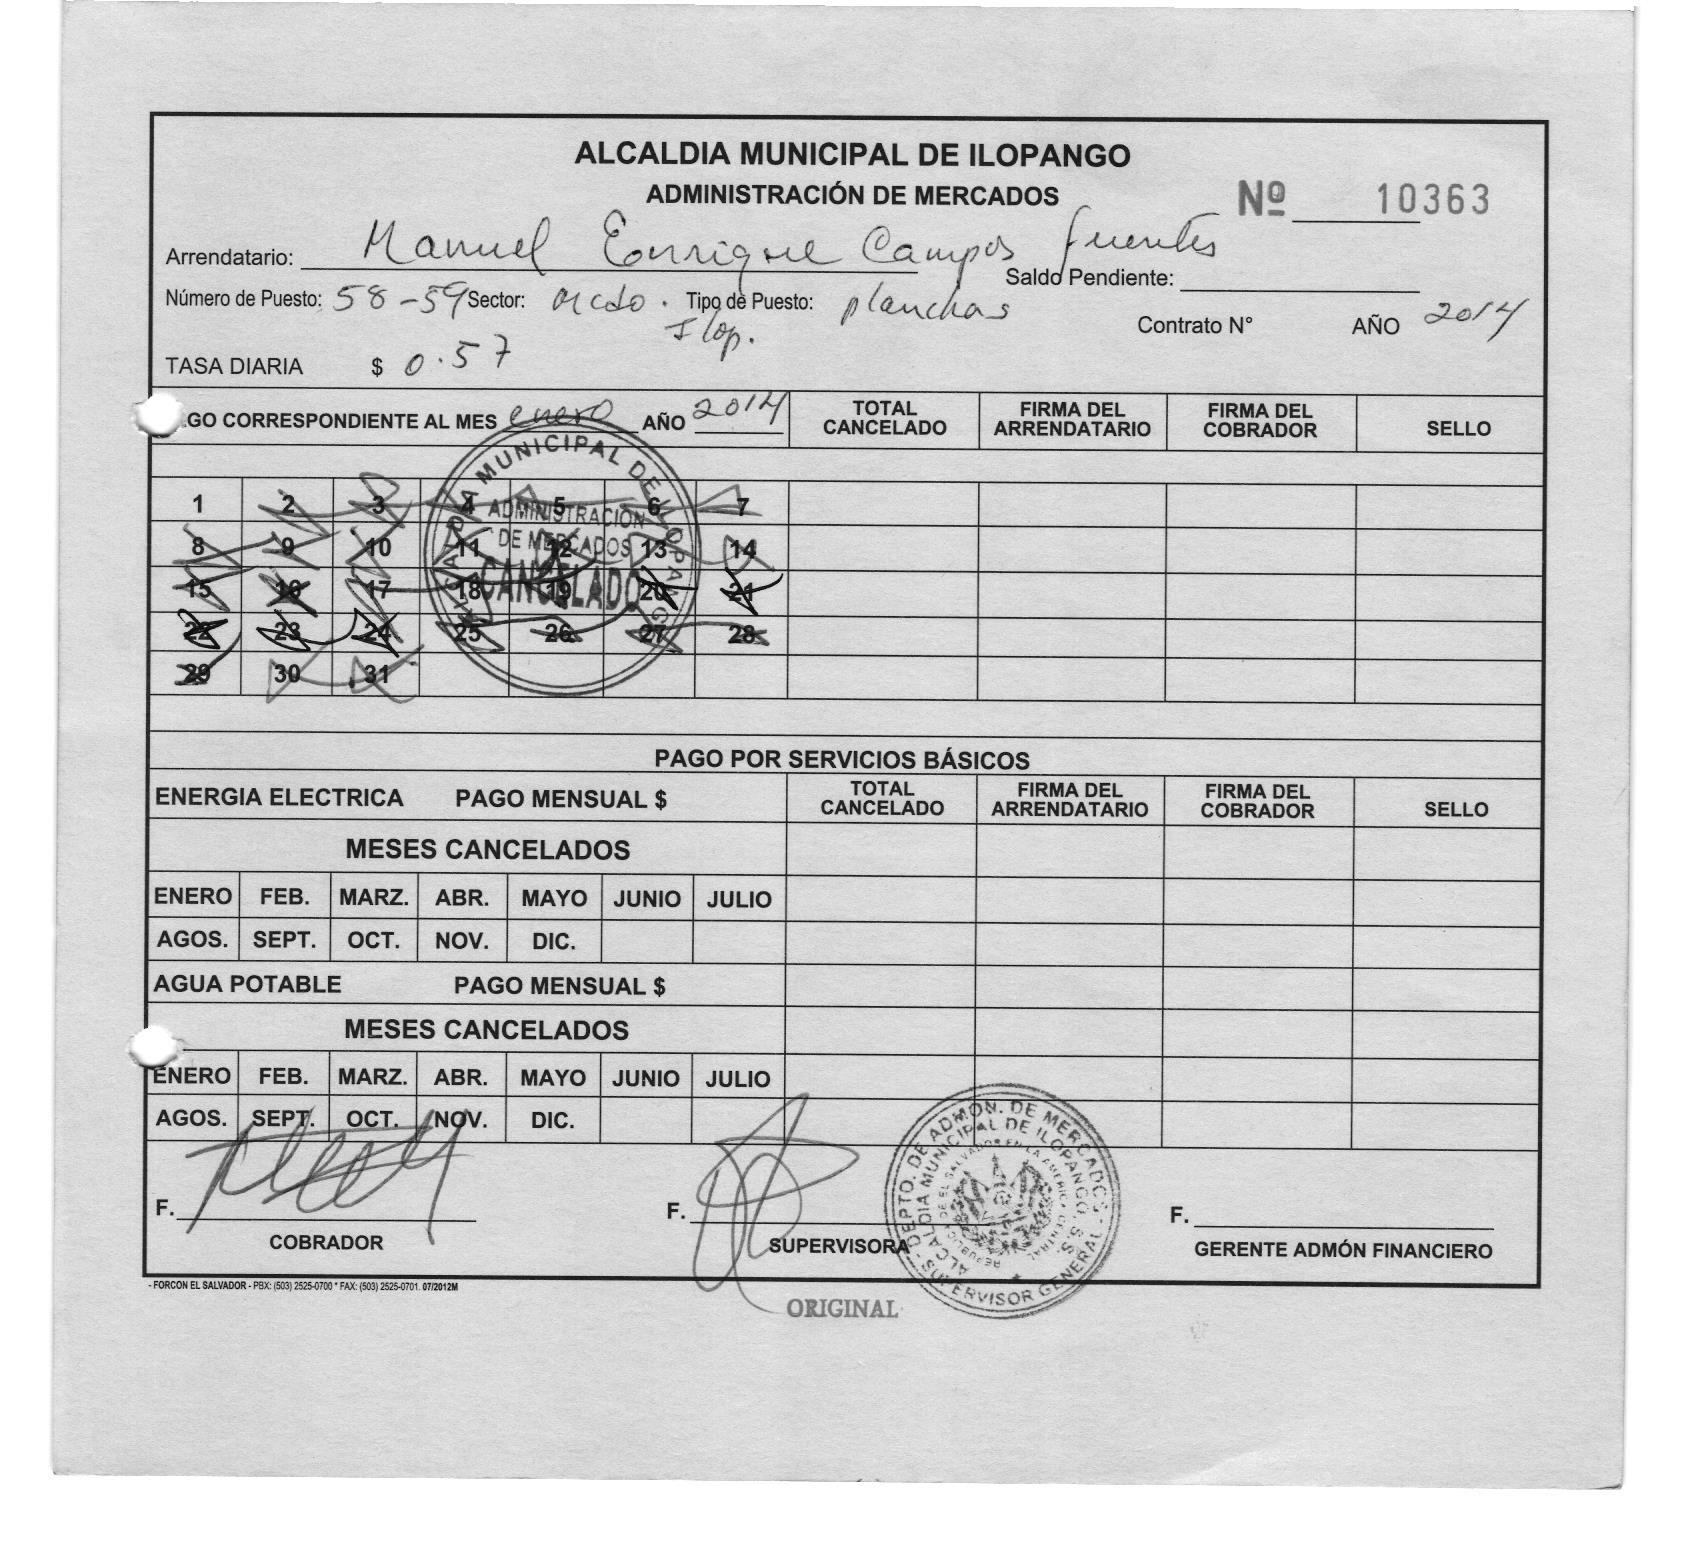 ALCALDIA MUNICIPAL DE ILOPANGO
ADMINISTRACIÓN DE MERCADOS
Nº 10363
Arrendatario: Manuel Enrique Campos Fuentes
Saldo Pendiente:
Número de Puesto: 58-59 Sector: Mcdo. Ilop. Tipo de Puesto: planchas
Contrato N° AÑO 2014
TASA DIARIA $ 0.57
GO CORRESPONDIENTE AL MES enero AÑO 2014 TOTAL CANCELADO FIRMA DEL ARRENDATARIO FIRMA DEL COBRADOR SELLO
1 2 3 4 5 6 7
8 9 10 11 12 13 14
15 16 17 18 19 20 21
22 23 24 25 26 27 28
29 30 31
ALCALDIA MUNICIPAL DE ILOPANGO
ADMINISTRACION
DE MERCADOS
CANCELADO
PAGO POR SERVICIOS BÁSICOS
ENERGIA ELECTRICA PAGO MENSUAL $ TOTAL CANCELADO FIRMA DEL ARRENDATARIO FIRMA DEL COBRADOR SELLO
MESES CANCELADOS
ENERO FEB. MARZ. ABR. MAYO JUNIO JULIO
AGOS. SEPT. OCT. NOV. DIC.
AGUA POTABLE PAGO MENSUAL $
MESES CANCELADOS
ENERO FEB. MARZ. ABR. MAYO JUNIO JULIO
AGOS. SEPT. OCT. NOV. DIC.
DEPTO. DE ADMON. DE MERCADOS
ALCALDIA MUNICIPAL DE ILOPANGO, S.S.
REPUBLICA DE EL SALVADOR EN LA AMERICA CENTRAL
SUPERVISOR GENERAL
F. F. F.
COBRADOR SUPERVISORA GERENTE ADMÓN FINANCIERO
- FORCON EL SALVADOR - PBX: (503) 2525-0700 * FAX: (503) 2525-0701. 07/2012M
ORIGINAL